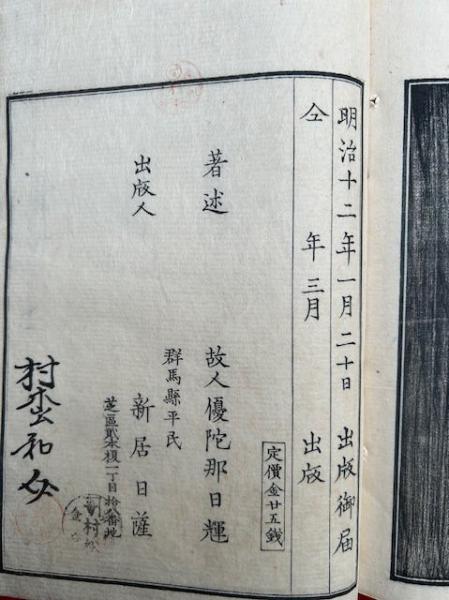 明治十二年一月二十日 出版御届
仝 年三月 出版
定價金廿五銭
著述 故人優陀那日輝
出版人 群馬縣平民
新居日薩
芝區貳本榎一丁目拾八番地